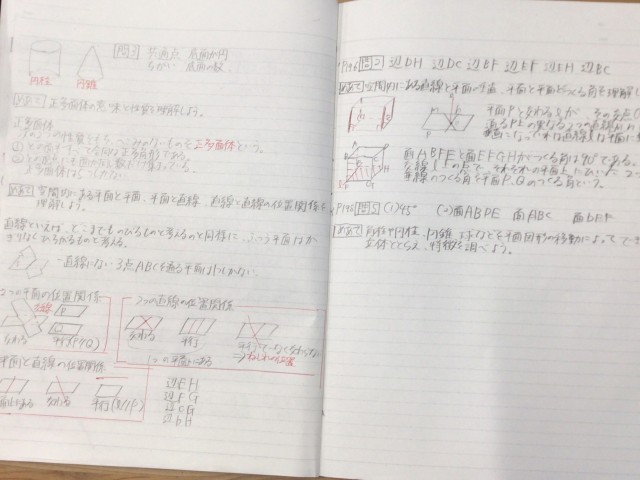 円柱 円錐
問3 共通点 底面が円
ちがい 底面の数
めあて 正多面体の意味と性質を理解しよう。
正多面体
次の2つの性質をもち、へこみのないものを正多面体という。
① どの面もすべて合同な正多角形である
② どの頂点にも面が同じ数だけ集まっている
正多面体は5つしかない
めあて 空間内にある平面と平面、平面と直線、直線と直線の位置関係を
理解しよう。
直線といえば、どこまでものびるものと考えるのと同様に、ふつう平面はか
ぎりなくひろがるものと考える。
一直線にない3点ABCを通る平面は1つしかない。
2つの平面の位置関係
交線
P
Q
交わる 平行(P//Q)
2つの直線の位置関係
交わる 平行 平行でなく交わらない
⇒ねじれの位置
1つの平面上にある
平面と直線の位置関係
交わる 平行
辺EH
辺FG
辺CG
辺DH
P196 問2 辺DH 辺DC 辺BF 辺EF 辺EH 辺BC
めあて 空間内にある直線と平面の垂直、平面と平面がつくる角を理解し
面ABFEと面EFGHがつくる角は90°である。
直線のつくる角を平面P、Qのつくる角という。
P198 問5 (1)45° (2)面ABDE 面ABC 面DEF
めあて 角柱や円柱、円錐、球などを平面図形の移動によってで
立体ととらえ、特徴を調べよう。